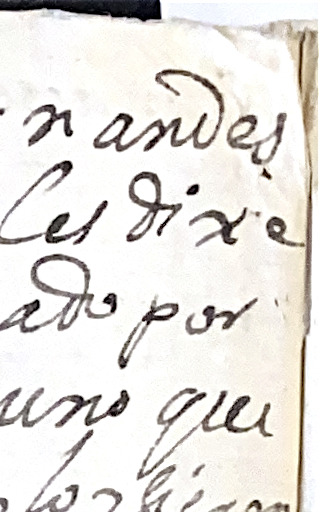 nandes
les dixe
ado por
uno que